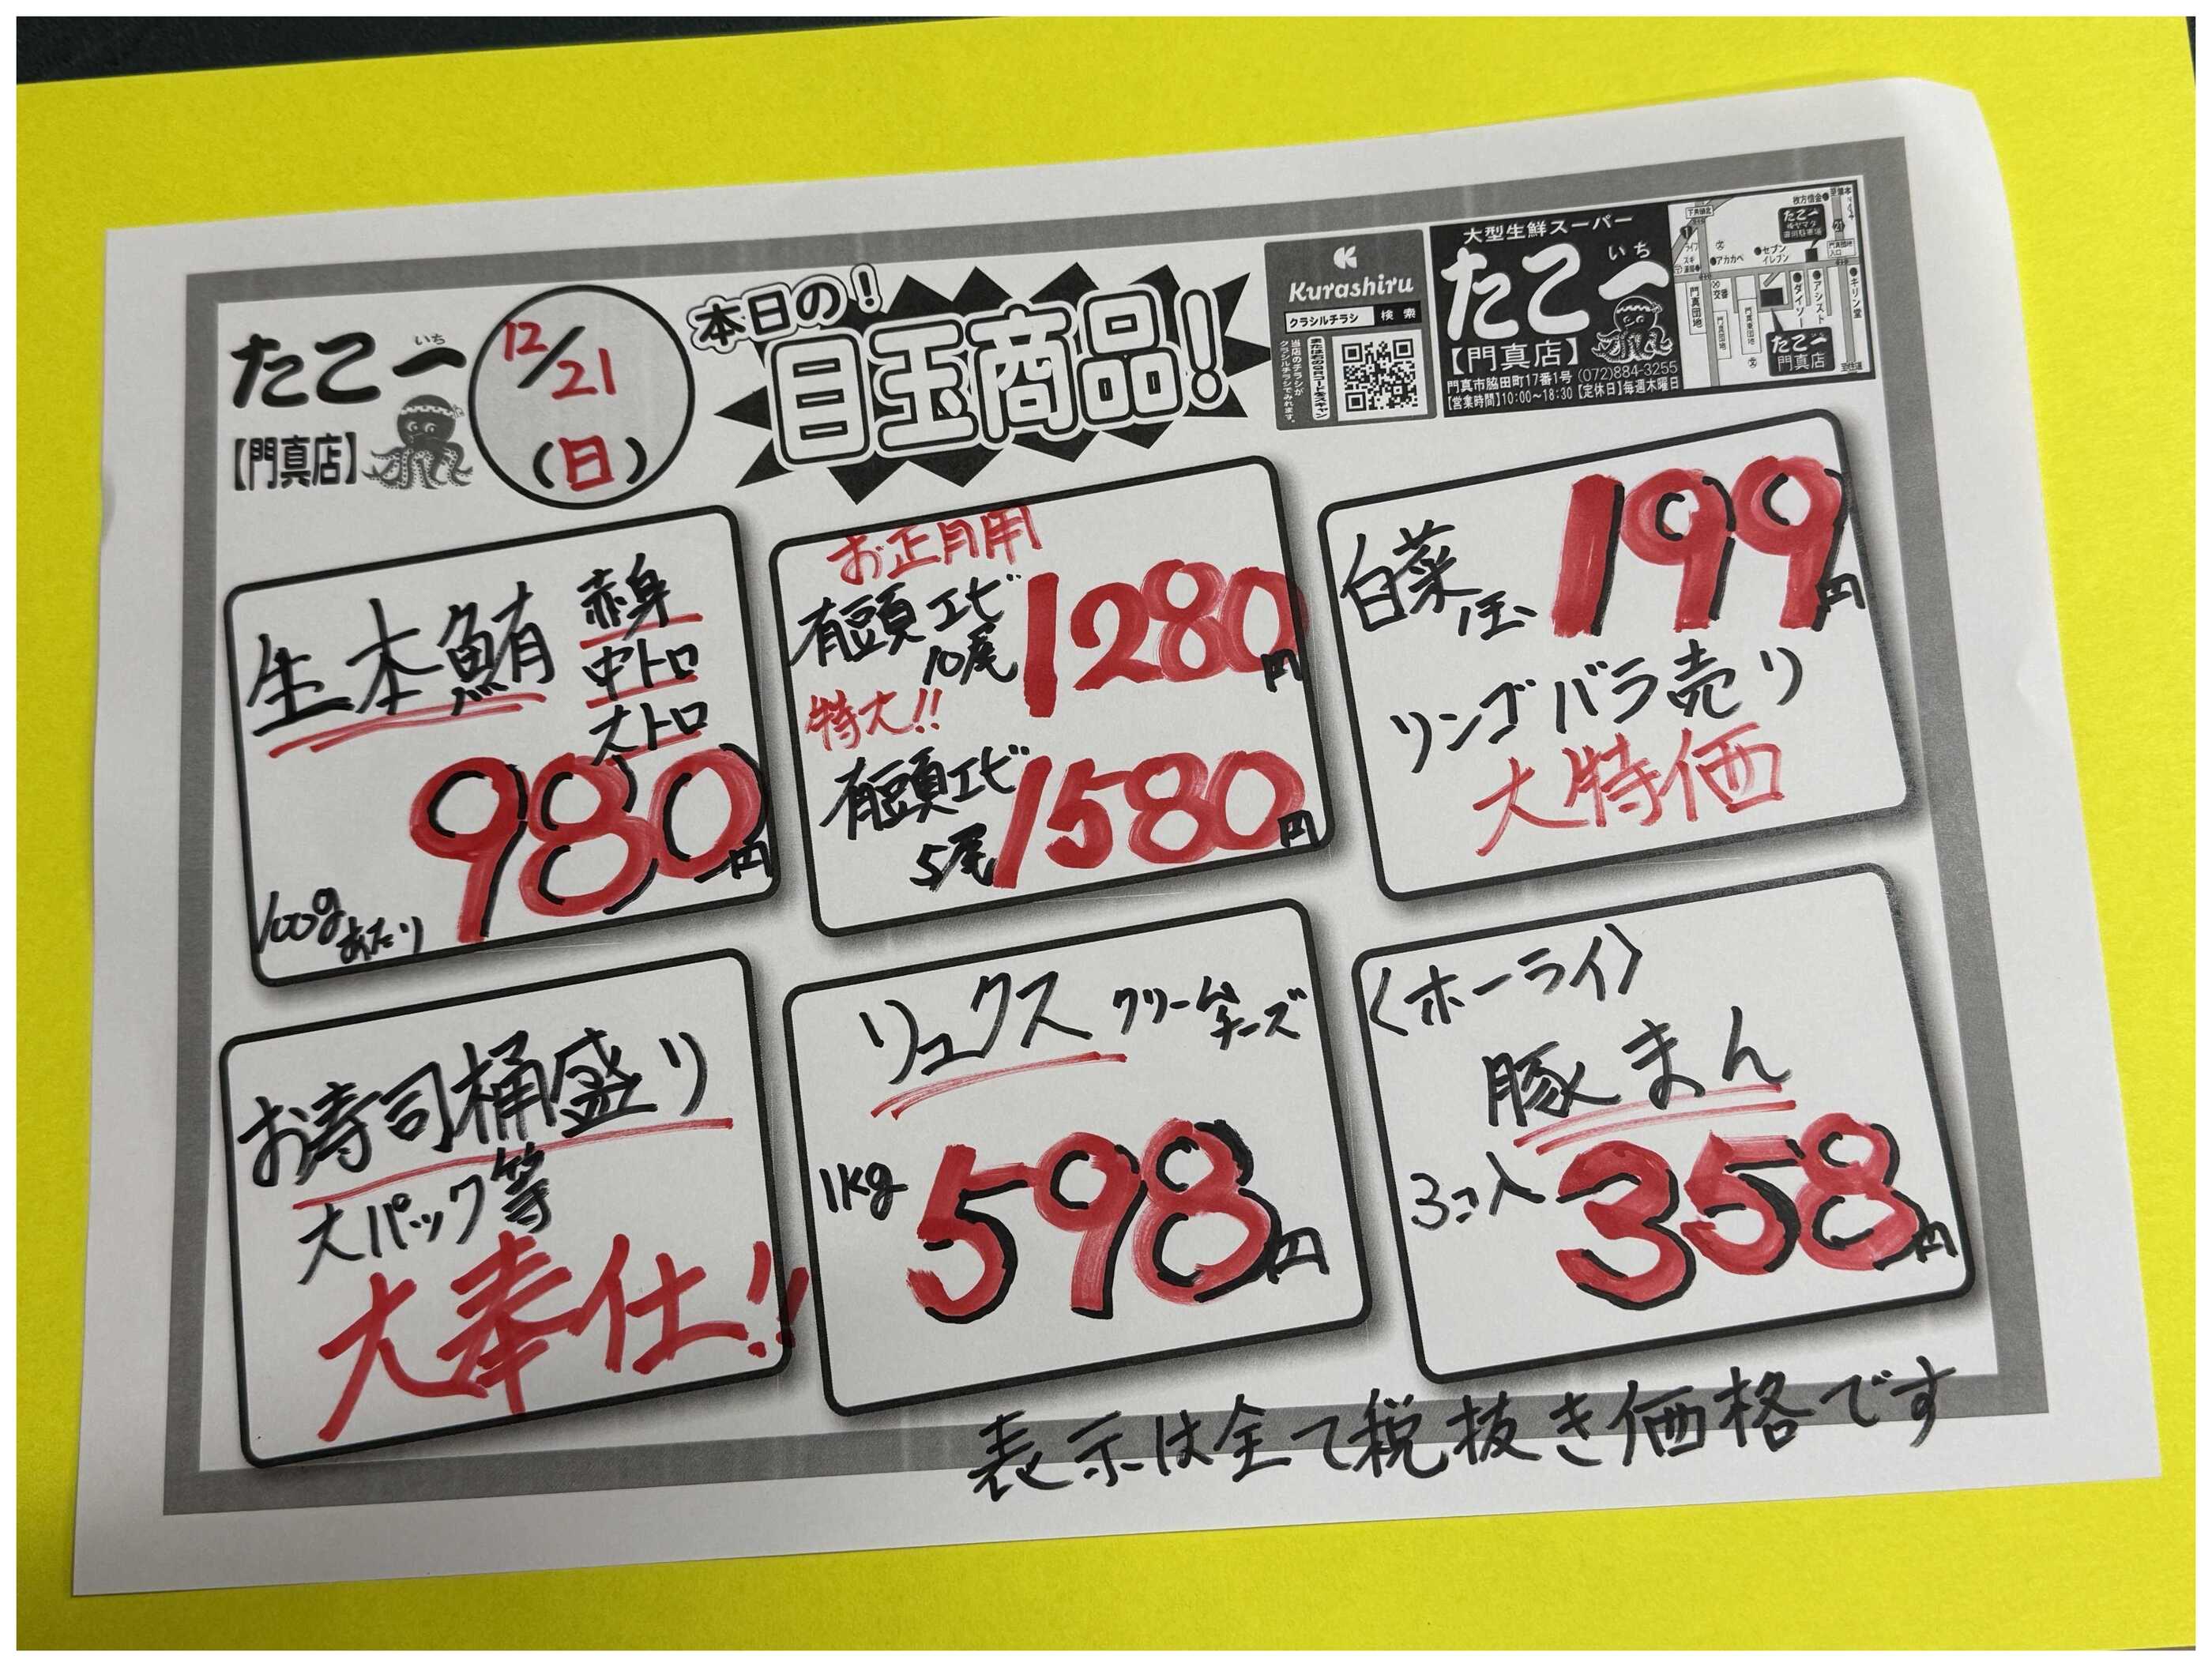 たこ一
いち
【門真店】
12/21
(日)
本日の!
目玉商品!
Kurashiru
クラシルチラシ 検索
または右のQRコードをスキャン
当店のチラシが
クラシルチラシでみれます。
大型生鮮スーパー
たこ一
いち
【門真店】
門真市脇田町17番1号 (072)884-3255
【営業時間】10:00～18:30 【定休日】毎週木曜日
枚方信金
たこ一
セブン
イレブン
アカカベ
ライフ
交番
門真団地
ダイソー
アシスト
キリン堂
たこ一
門真店
生本鮪
赤身
中トロ
大トロ
980円
100gあたり
お正月用
有頭エビ
10尾
1280円
特大!!
有頭エビ
5尾
1580円
白菜 1玉 199円
リンゴバラ売り
大特価
お寿司桶盛り
大パック等
大奉仕!!
リュクス クリームチーズ
1kg 598円
〈ホーライ〉
豚まん
3コ入 358円
表示は全て税抜き価格です